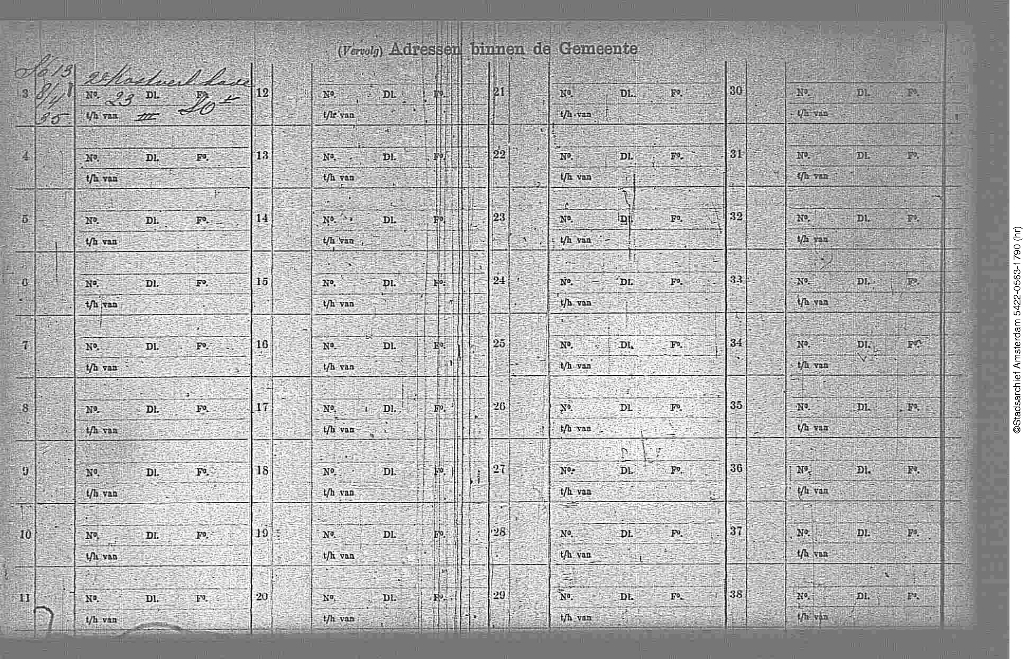 (Vervolg) Adressen binnen de Gemeente
13
3 8/4
No. 23 Dl. Fo.
t/h van III
4 No. Dl. Fo.
t/h van
5 No. Dl. Fo.
t/h van
6 No. Dl. Fo.
t/h van
7 No. Dl. Fo.
t/h van
8 No. Dl. Fo.
t/h van
9 No. Dl. Fo.
t/h van
10 No. Dl. Fo.
t/h van
11 No. Dl. Fo.
t/h van
12 No. Dl. Fo.
t/h van
13 No. Dl. Fo.
t/h van
14 No. Dl. Fo.
t/h van
15 No. Dl. Fo.
t/h van
16 No. Dl. Fo.
t/h van
17 No. Dl. Fo.
t/h van
18 No. Dl. Fo.
t/h van
19 No. Dl. Fo.
t/h van
20 No. Dl. Fo.
t/h van
21 No. Dl. Fo.
t/h van
22 No. Dl. Fo.
t/h van
23 No. Dl. Fo.
t/h van
24 No. Dl. Fo.
t/h van
25 No. Dl. Fo.
t/h van
26 No. Dl. Fo.
t/h van
27 No. Dl. Fo.
t/h van
28 No. Dl. Fo.
t/h van
29 No. Dl. Fo.
t/h van
30 No. Dl. Fo.
t/h van
31 No. Dl. Fo.
t/h van
32 No. Dl. Fo.
t/h van
33 No. Dl. Fo.
t/h van
34 No. Dl. Fo.
t/h van
35 No. Dl. Fo.
t/h van
36 No. Dl. Fo.
t/h van
37 No. Dl. Fo.
t/h van
38 No. Dl. Fo.
t/h van
©Stadsarchief Amsterdam 5422-0563-1790 (nr)